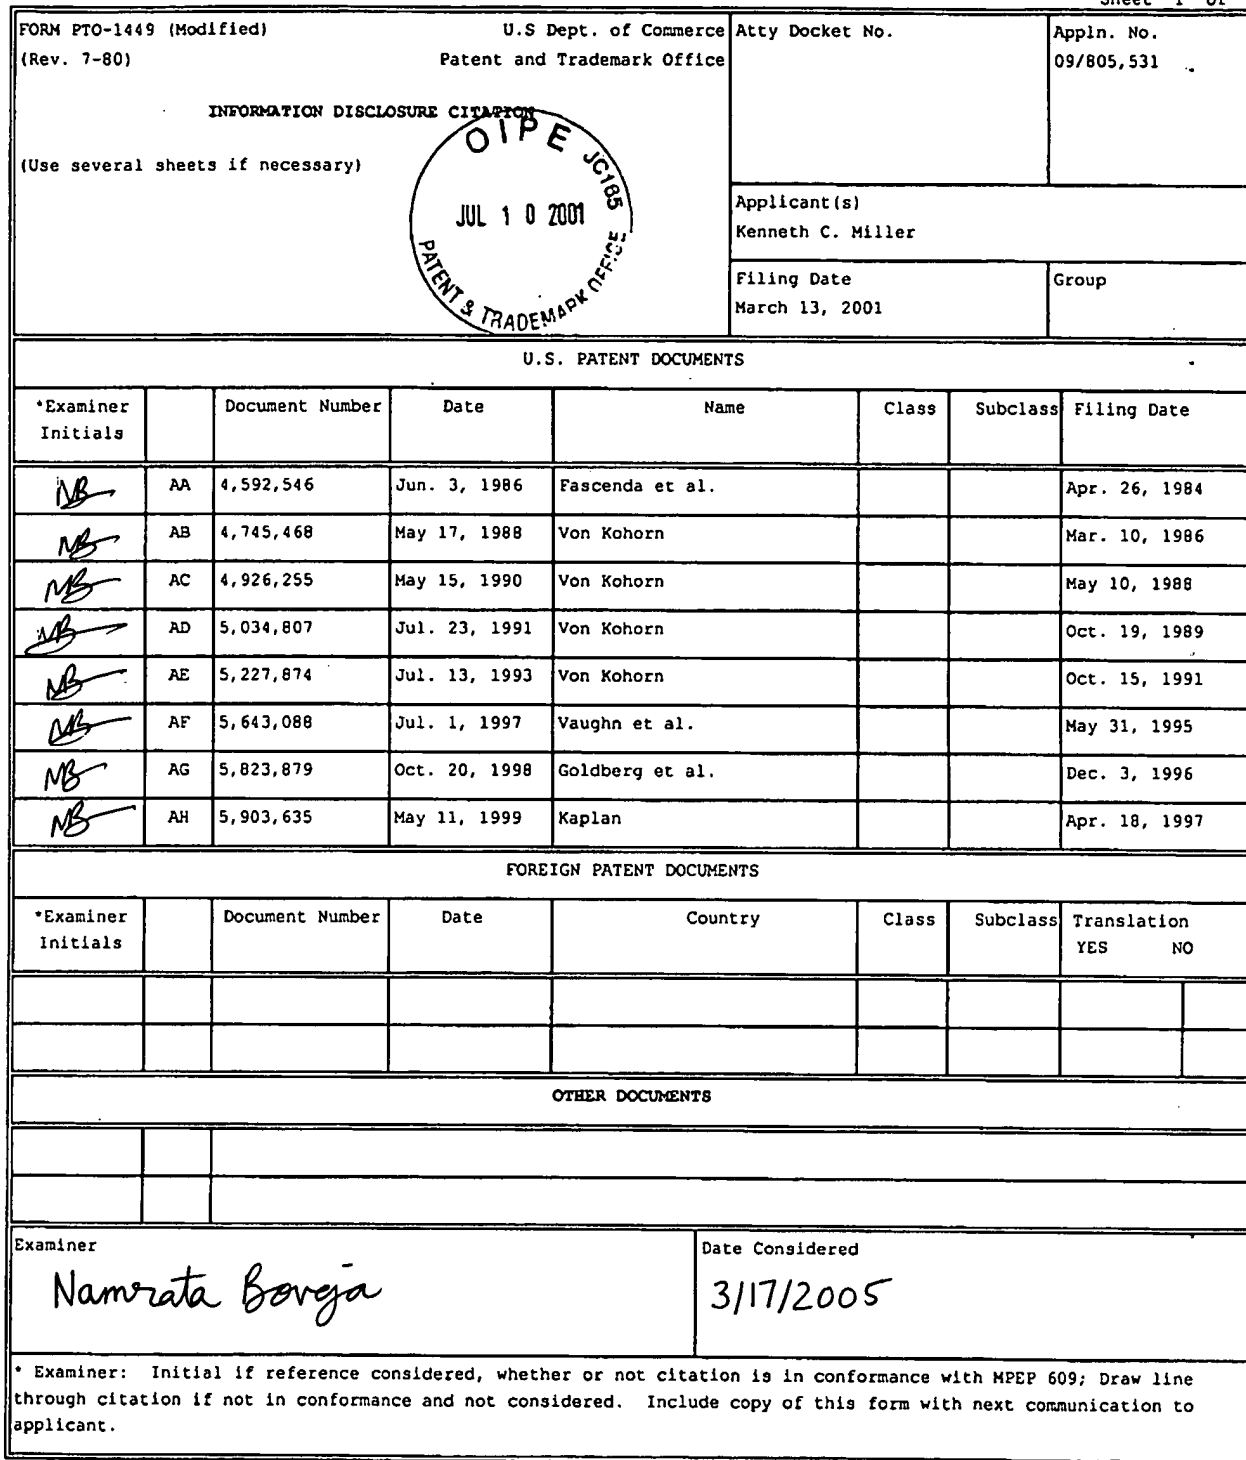 Sheet 1 of
FORM PTO-1449 (Modified) U.S Dept. of Commerce
(Rev. 7-80) Patent and Trademark Office
INFORMATION DISCLOSURE CITATION
(Use several sheets if necessary)
OIPE JC185
JUL 10 2001
PATENT & TRADEMARK OFFICE
Atty Docket No.
Appln. No.
09/805,531
Applicant(s)
Kenneth C. Miller
Filing Date
March 13, 2001
Group
U.S. PATENT DOCUMENTS
*Examiner Initials Document Number Date Name Class Subclass Filing Date
NB AA 4,592,546 Jun. 3, 1986 Fascenda et al. Apr. 26, 1984
NB AB 4,745,468 May 17, 1988 Von Kohorn Mar. 10, 1986
NB AC 4,926,255 May 15, 1990 Von Kohorn May 10, 1988
NB AD 5,034,807 Jul. 23, 1991 Von Kohorn Oct. 19, 1989
NB AE 5,227,874 Jul. 13, 1993 Von Kohorn Oct. 15, 1991
NB AF 5,643,088 Jul. 1, 1997 Vaughn et al. May 31, 1995
NB AG 5,823,879 Oct. 20, 1998 Goldberg et al. Dec. 3, 1996
NB AH 5,903,635 May 11, 1999 Kaplan Apr. 18, 1997
FOREIGN PATENT DOCUMENTS
*Examiner Initials Document Number Date Country Class Subclass Translation
YES NO
OTHER DOCUMENTS
Examiner
Namrata Boveja
Date Considered
3/17/2005
* Examiner: Initial if reference considered, whether or not citation is in conformance with MPEP 609; Draw line
through citation if not in conformance and not considered. Include copy of this form with next communication to
applicant.